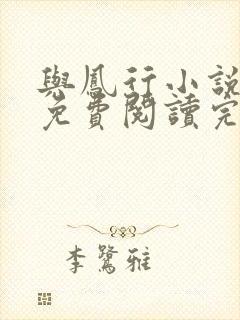 與鳳行小說
免費閱讀完
李鷺雅